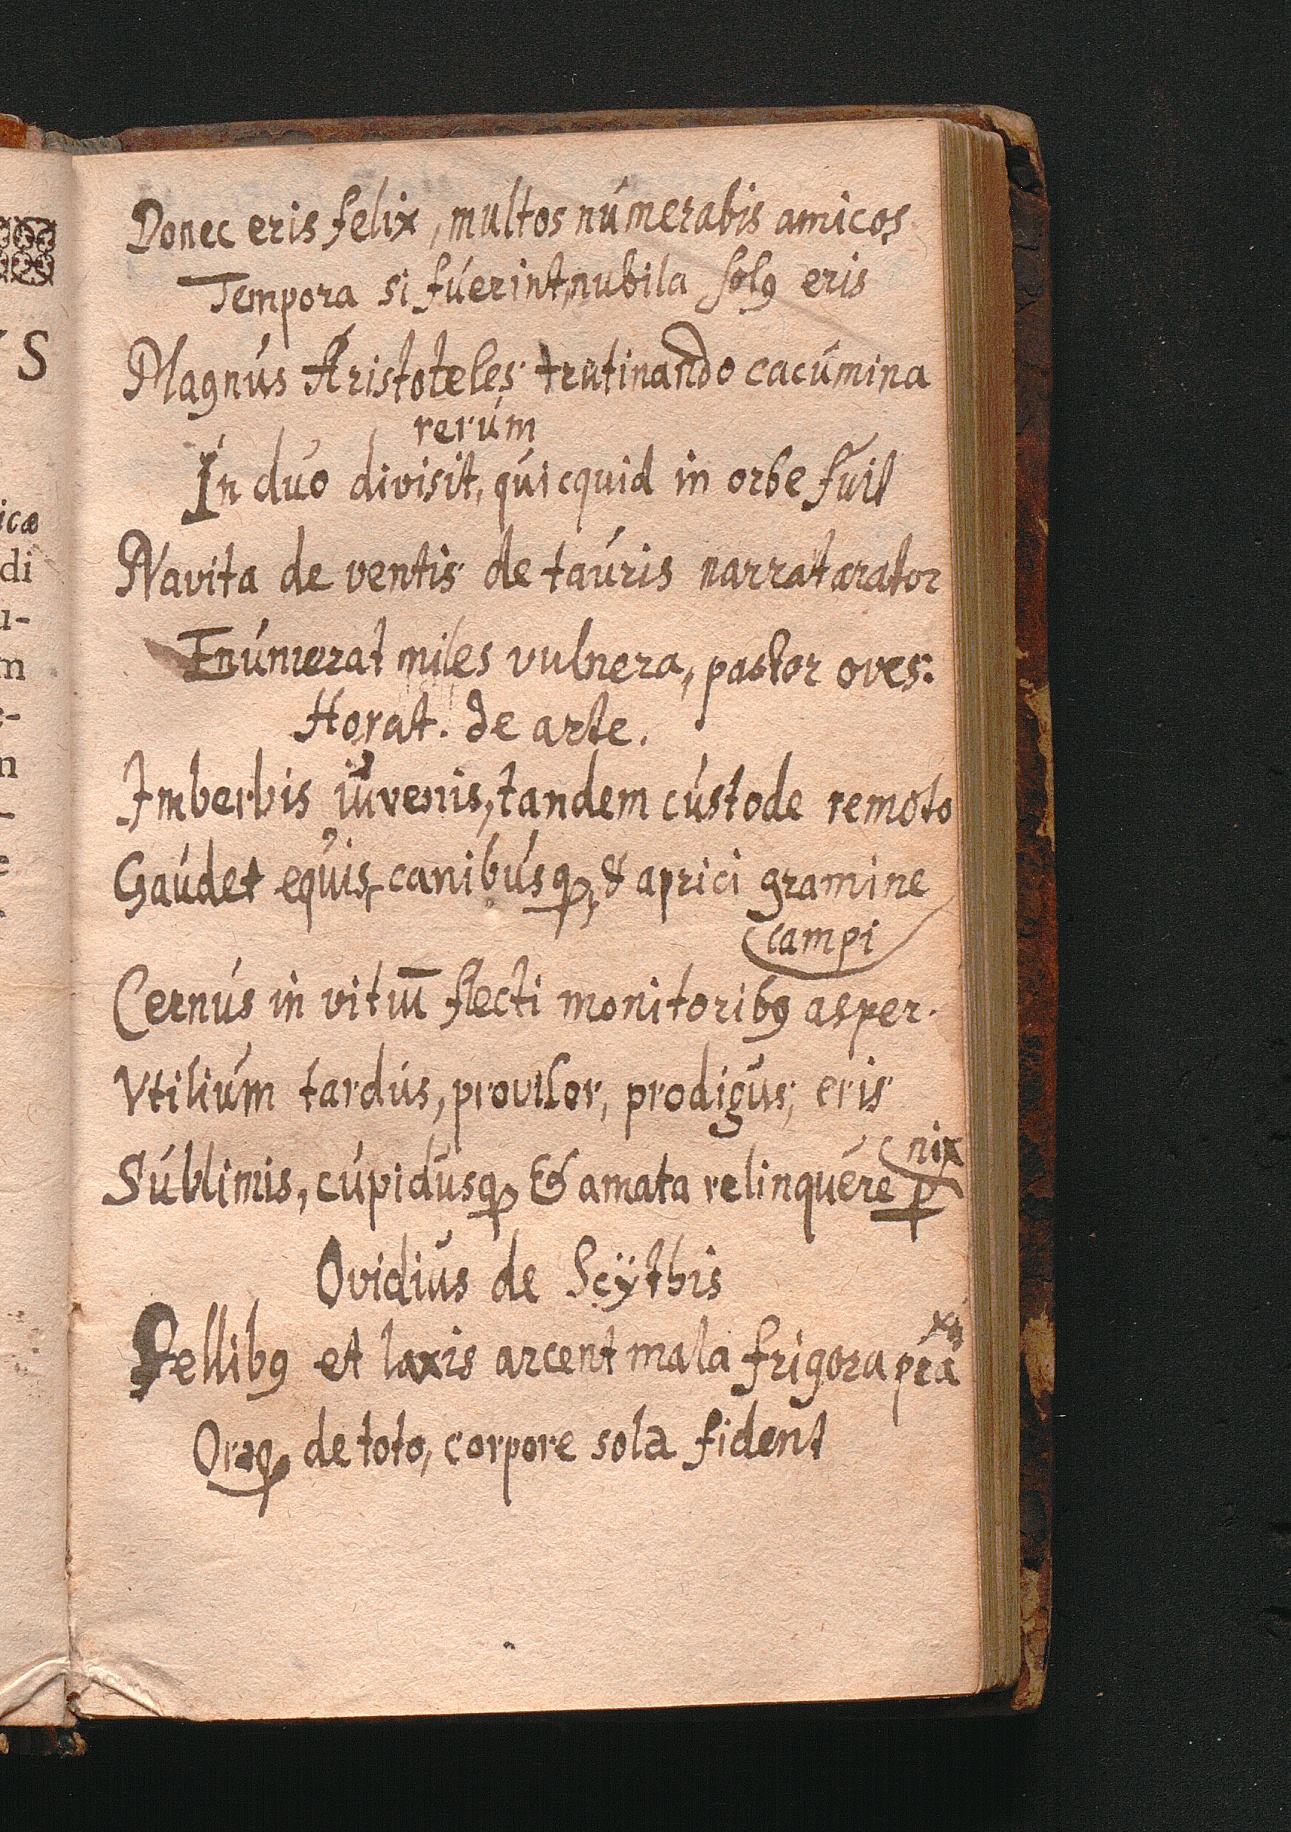 S
icæ
di
u-
m
Donec eris felix, multos númerabis amicos
Tempora si fúerint, nubila solꝰ eris
Magnús Aristoteles trutinando cacúmina
rerúm
In dúo divisit, qúicquid in orbe fúit
Navita de ventis de taúris narrat arator
Enúmerat miles vulnera, pastor oves.
Horat. de arte.
Imberbis iúvenis, tandem cústode remoto
Gaúdet equis, canibúsqꝫ, & aprici gramine
campi
Cernús in vitiū flecti monitoribꝰ asper.
Vtiliúm tardús, provisor, prodigus, eris
Súblimis, cúpidúsqꝫ & amata relinquere ꝑ
nix
Ovidius de Scÿthis
Pellibꝰ et laxis arcent mala frigora
Oraqꝫ de toto, corpore sola fident